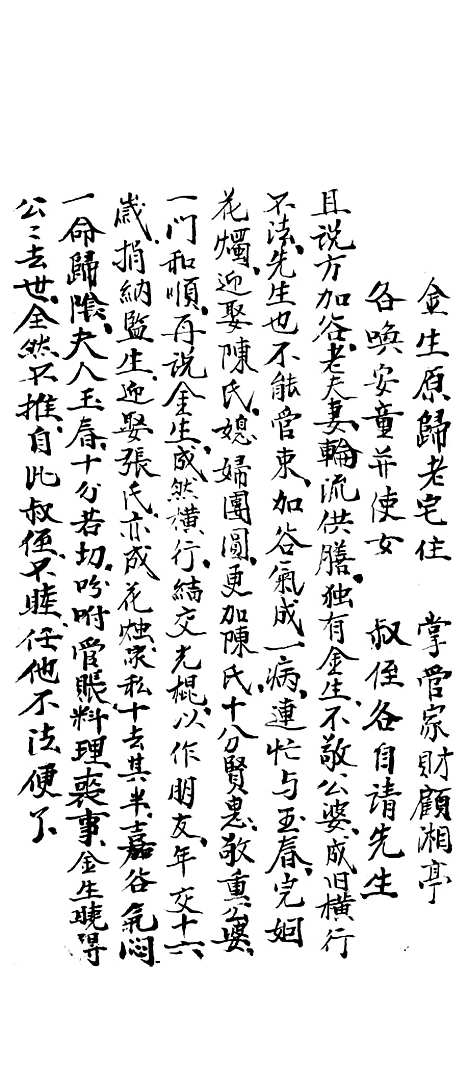 金生原歸老宅住　掌管家財顧湘亭
各喚安童并使女　叔侄各自請先生
且说方加谷老夫妻輪流供膳独有金生不敬公婆成旧横行
不法先生也不能管束加谷氣成一病連忙与玉春完姻
花燭迎娶陳氏媳婦團圓更加陳氏十分賢惠敬重公婆
一门和順再说金生成然横行結交光棍以作朋友年交十六
歲捐納監生迎娶張氏亦成花烛家私十去其半嘉谷氣悶
一命歸陰夫人玉春十分苦切吩咐管賬料理喪事金生曉得
公〻去世全然不推自此叔侄不睦任他不法便了